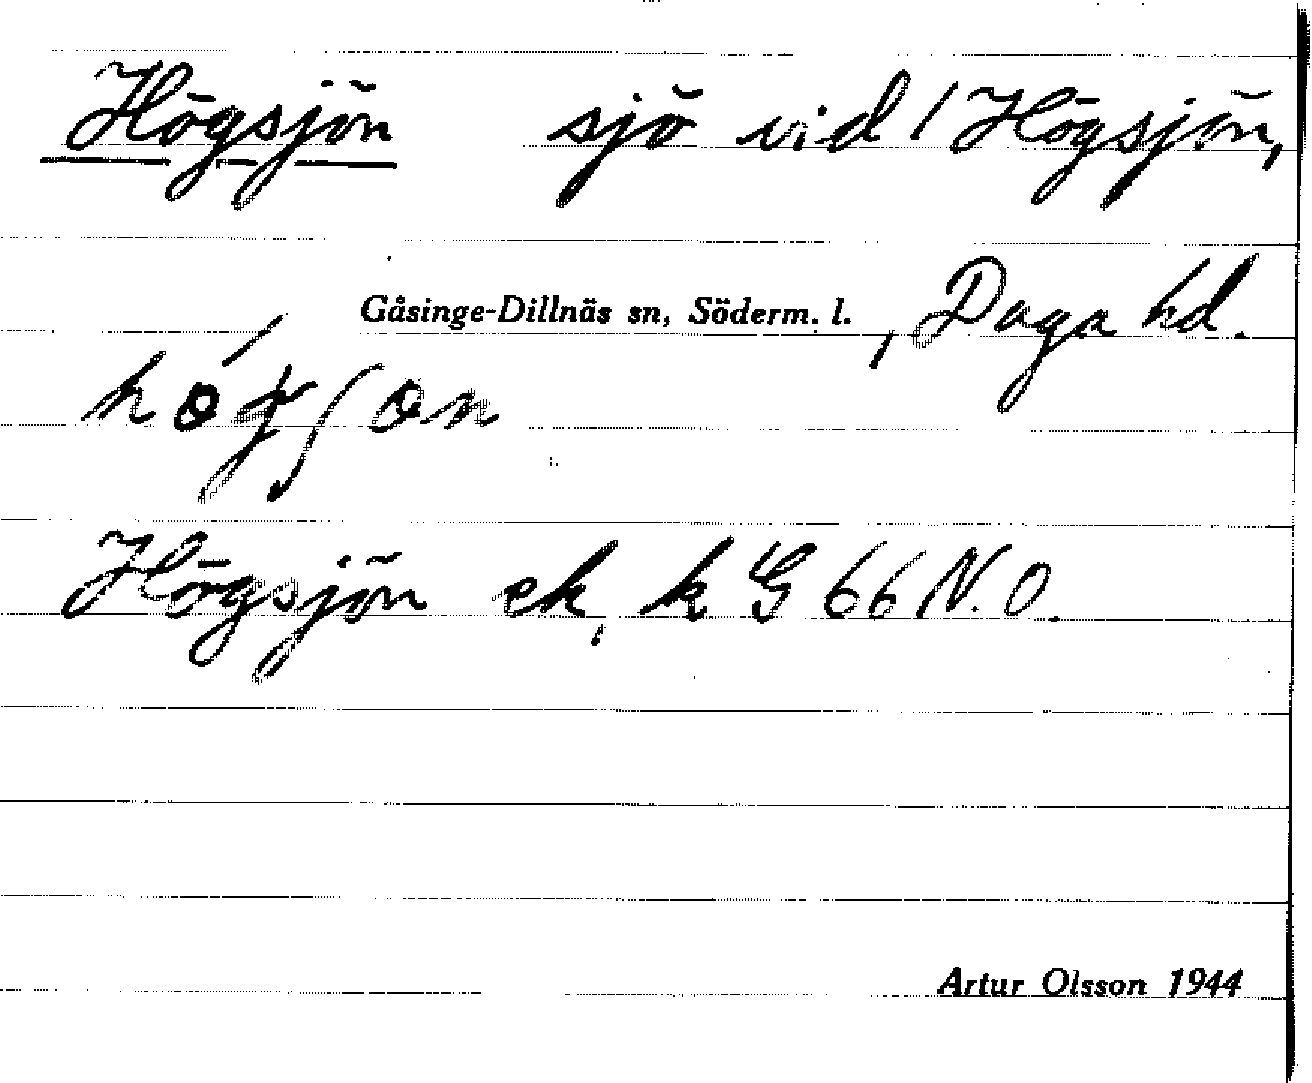 Högsjön sjö vid / Högsjön,
Gåsinge-Dillnäs sn, Söderm. l., Daga hd.
Högsjön ek, k G 66 N.O.
Artur Olsson 1944